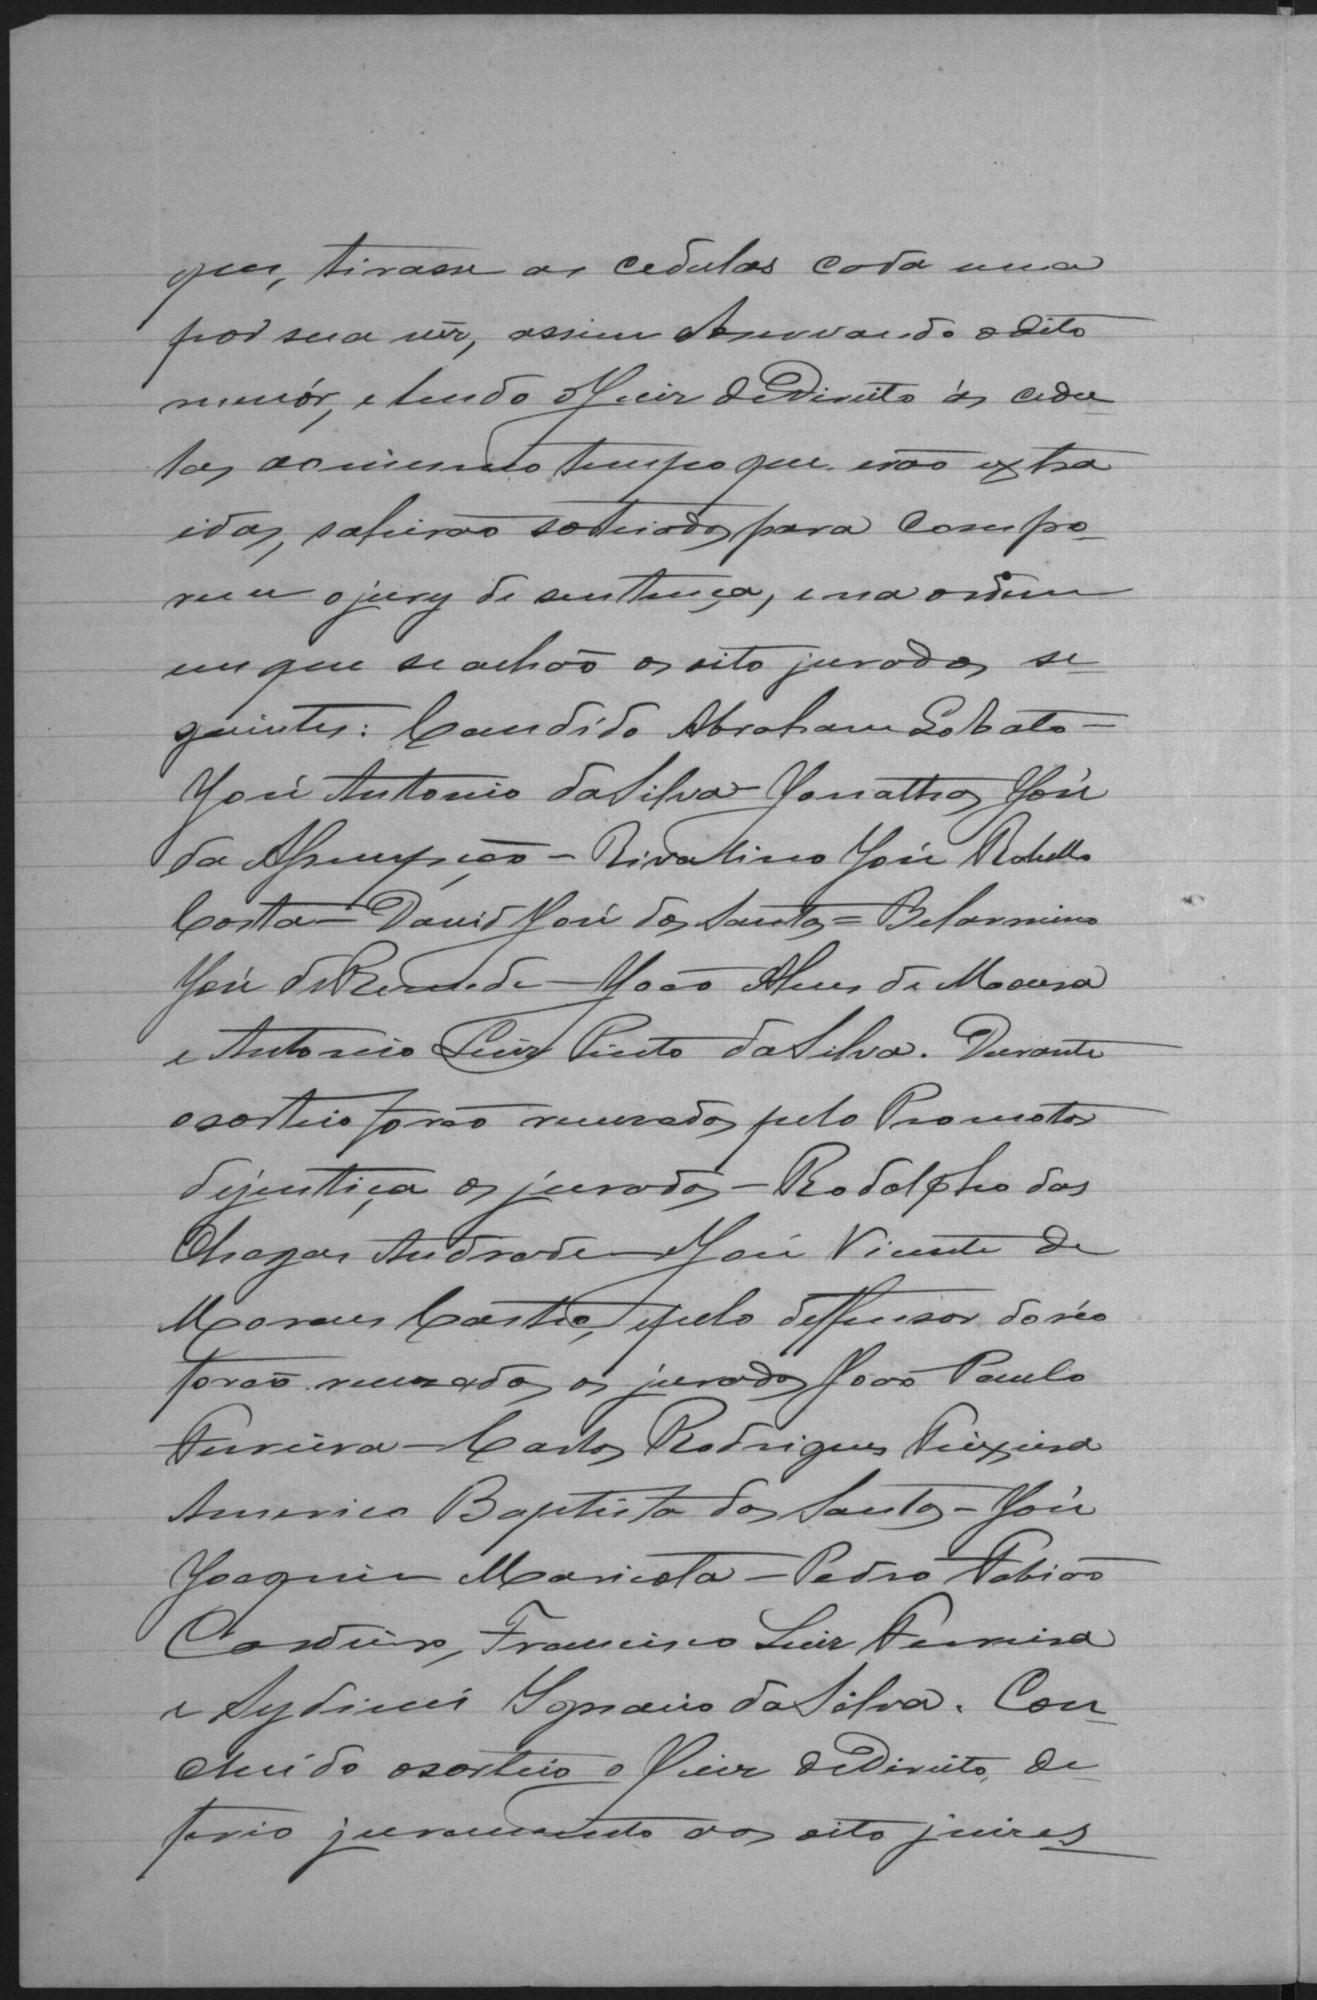 que, tirasse as cedulas cada uma
por sua vêz, assim observando o dito
menór, e lendo o Juiz de Direito ás cedu
las ao mesmo tempo que erão extra
idas, sahirão sorteados para compo-
rem o jury de sentença, e na ordem
em que se achão os oito jurados se-
guintes: Candido Abraham Lobato -
José Antonio da Silva - Jonathas José
da Assumpção - Rivalino José Rabello
Costa - David José dos Santos = Belarmino
José de Resende - João Alves de Moura
e Antonio Luiz Pinto da Silva. Durante
o sorteio forão recusados pelo Promotor
de justiça os jurados - Rodolpho das
Chagas Andrade - José Vicente de
Moraes Castro, e pelo deffensor do réo
forão recusados os jurados João Paulo
Ferreira - Carlos Rodrigues Teixeira
Americo Baptista dos Santos - José
Joaquim Maricota - Pedro Fabião
Cordeiro, Francisco Luiz Ferreira
e Ignacio da Silva. Con-
cluído o sorteio o Juiz de Direito, de-
ferio juramento aos oito juizes